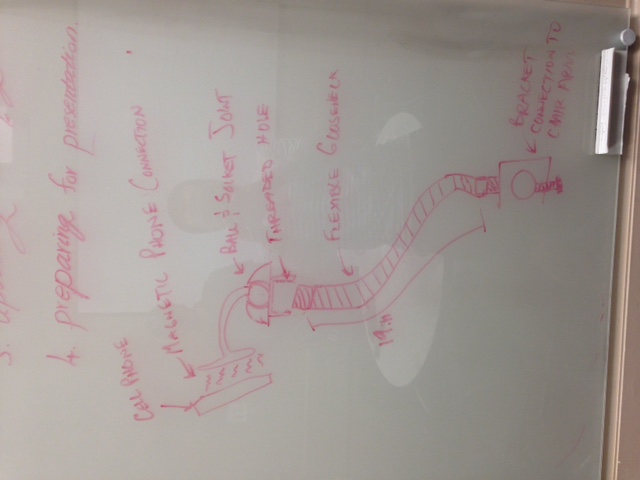 3.
4. preparing for presentation.
CELL PHONE
MAGNETIC PHONE CONNECTION
BALL & SOCKET JOINT
THREADED HOLE
FLEXIBLE GOOSENECK
19 in
BRACKET
CONNECTION TO
CHAIR ARM